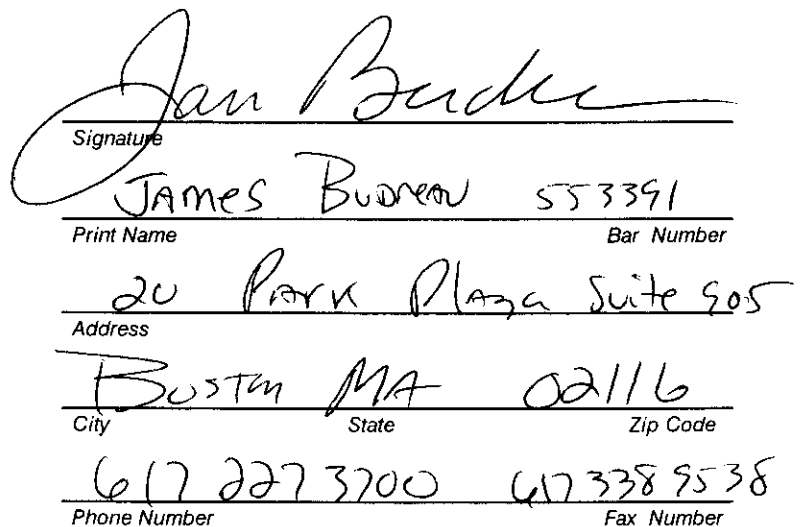 Signature
JAMES BUDREAU 553391
Print Name Bar Number
20 PARK Plaza Suite 905
Address
BOSTON MA 02116
City State Zip Code
617 227 3700 617 338 9538
Phone Number Fax Number